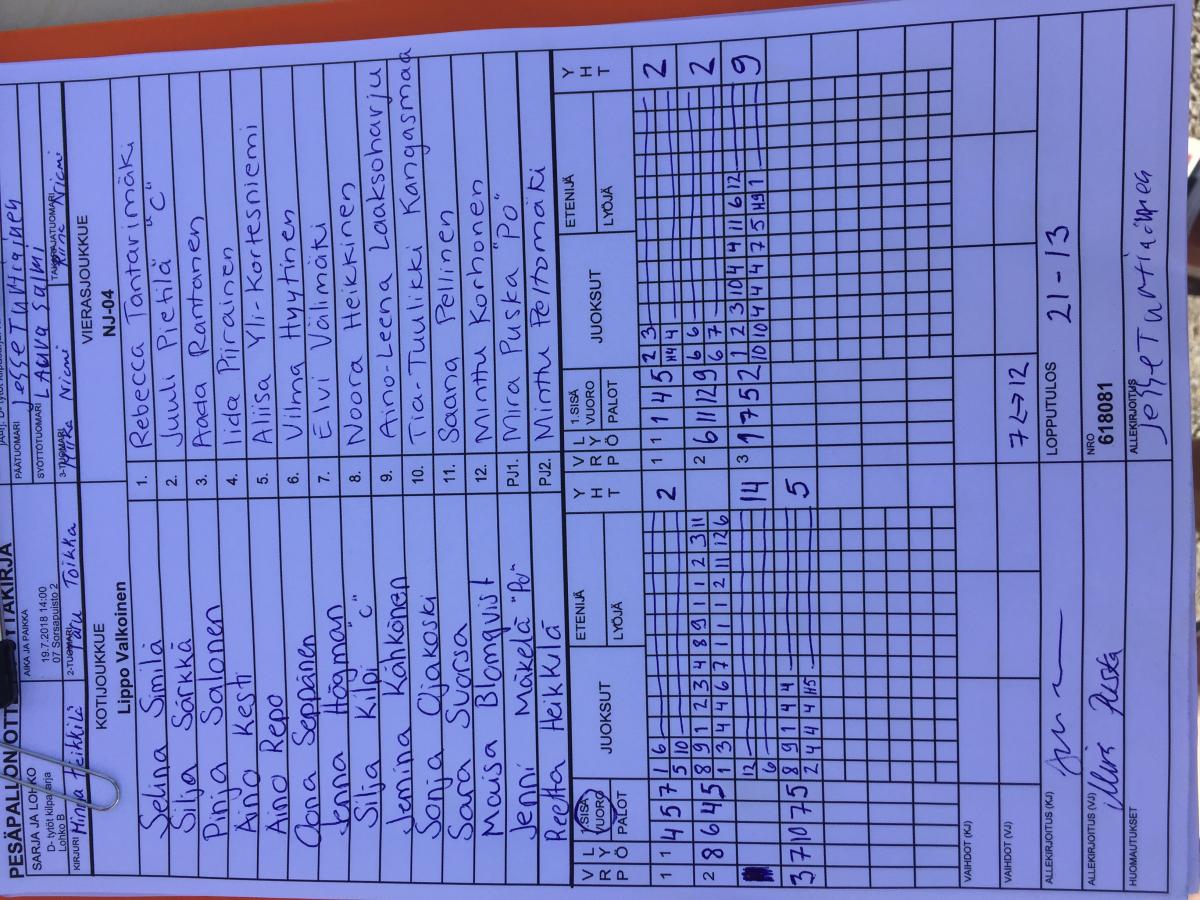 PESÄPALLON OTTELUPÖYTÄKIRJA
SARJA JA LOHKO
D- tytöt kilpasarja
Lohko B
AIKA JA PAIKKA
19.7.2018 14:00
07 Sorsapuisto 2
PÄÄTUOMARI
Jesse Turtiainen
SYÖTTÖTUOMARI
Laura Salmi
KIRJURI Minna Heikkilä
2-TUOMARI Toikka
3-TUOMARI Niemi
TAKARAJATUOMARI Niemi
KOTIJOUKKUE
Lippo Valkoinen
VIERASJOUKKUE
NJ-04
1. Selina Similä
2. Silja Särkkä
3. Pinja Salonen
4. Aino Kesti
5. Aino Repo
6. Oona Seppänen
7. Jenna Högman
8. Silja Kilpi "C"
9. Jemina Kähkönen
10. Sonja Ojakoski
11. Sara Suorsa
12. Maisa Blomqvist
PJ1. Jenni Mäkelä "Po"
PJ2. Reetta Heikkilä
Rebecca Tantarimäki
Juuli Pietilä "C"
Aada Rantanen
Iida Piirainen
Aliisa Yli-Kortesniemi
Vilma Hyytinen
Elvi Välimäki
Noora Heikkinen
Aino-Leena Laaksoharju
Tia-Tuulikki Kangasmaa
Saana Pellinen
Minttu Korhonen
Mira Puska "PO"
Minttu Peltomäki
V R Ö L Y P 1.SISÄ VUORO PALOT JUOKSUT ETENIJÄ LYÖJÄ Y H T
V R Ö L Y P 1.SISÄ VUORO PALOT JUOKSUT ETENIJÄ LYÖJÄ Y H T
1 1 4 5 7 1 6 2
5 10
1 1 1 4 5 2 3 2
H4 4
2 8 6 4 5 8 9 1 2 3 4 8 9 1 1 2 3 11
1 3 4 4 6 7 1 1 1 2 11 12 6
2 6 11 12 9 6 6 2
6 7
12 14
6
3 1 7 5 2 1 2 3 10 4 4 11 6 12 9
10 10 4 4 4 7 5 H9 1
3 7 10 7 5 8 9 1 4 4 5
2 4 4 4 H5
VAIHDOT (KJ)
VAIHDOT (VJ)
7<->12
ALLEKIRJOITUS (KJ)
LOPPUTULOS
21-13
ALLEKIRJOITUS (VJ)
Mira Puska
NRO
618081
HUOMAUTUKSET
ALLEKIRJOITUS
Jesse Turtiainen